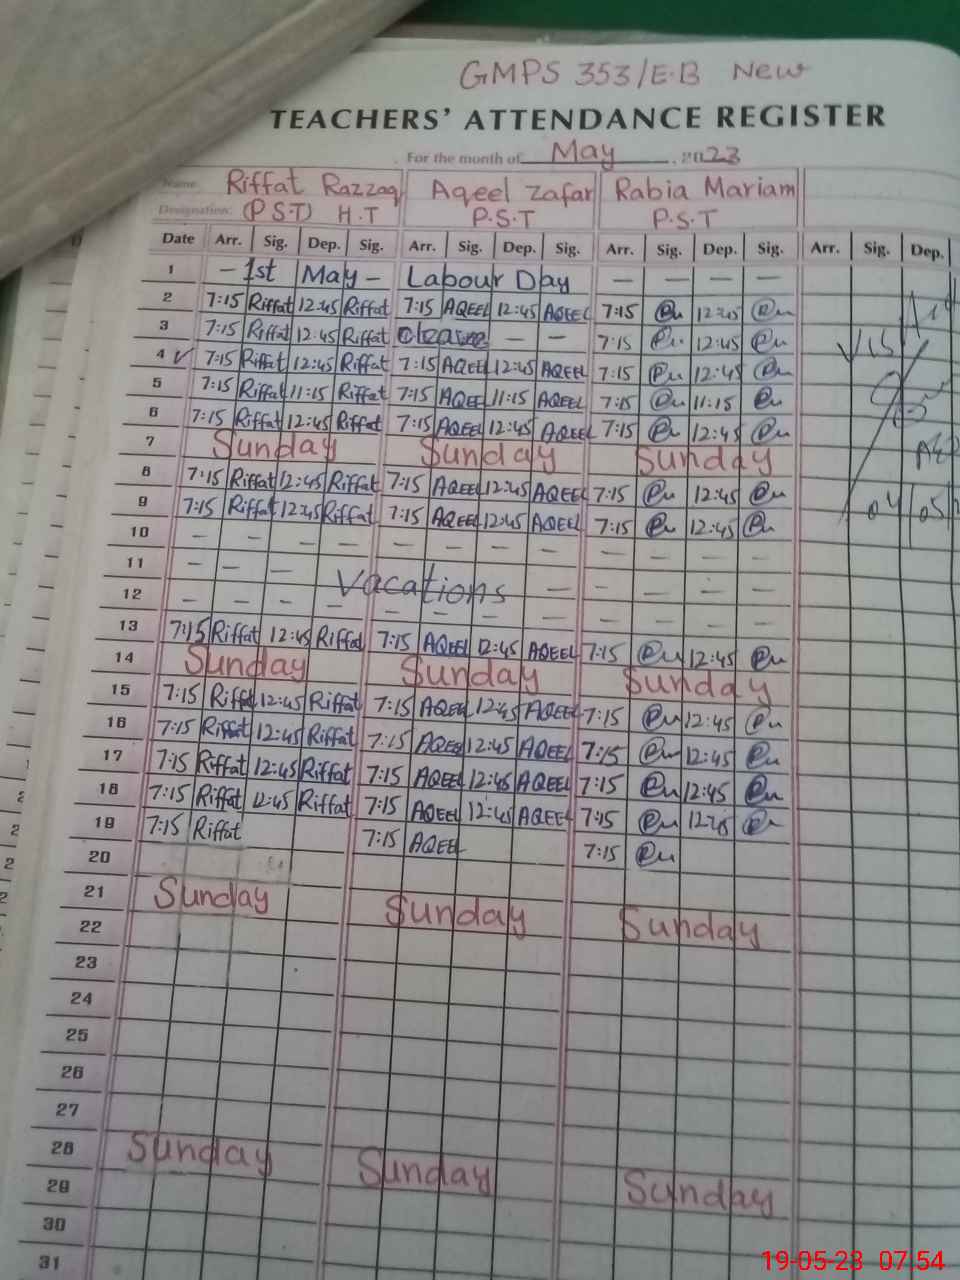 GMPS 353/E.B New
TEACHERS' ATTENDANCE REGISTER
For the month of May, 2023
Name: Riffat Razzaq Aqeel Zafar Rabia Mariam
Designation: (P.S.T) H.T P.S.T P.S.T
Date Arr. Sig. Dep. Sig. Arr. Sig. Dep. Sig. Arr. Sig. Dep. Sig. Arr. Sig. Dep.
1 – 1st May – Labour Day – – – –
2 7:15 Riffat 12:45 Riffat 7:15 AQEEL 12:45 AQEEL 7:15 12:45
3 7:15 Riffat 12:45 Riffat – – 7:15 12:45
4 ✓ 7:15 Riffat 12:45 Riffat 7:15 AQEEL 12:45 AQEEL 7:15 12:45
5 7:15 Riffat 11:15 Riffat 7:15 AQEEL 11:15 AQEEL 7:15 11:15
6 7:15 Riffat 12:45 Riffat 7:15 AQEEL 12:45 AQEEL 7:15 12:45
7 Sunday Sunday Sunday
8 7:15 Riffat 12:45 Riffat 7:15 AQEEL 12:45 AQEEL 7:15 12:45
9 7:15 Riffat 12:45 Riffat 7:15 AQEEL 12:45 AQEEL 7:15 12:45
10 – – – – – – – – – – – –
11 – – –
12 Vacations
13 7:15 Riffat 12:45 Riffat 7:15 AQEEL 12:45 AQEEL 7:15 12:45
14 Sunday Sunday Sunday
15 7:15 Riffat 12:45 Riffat 7:15 AQEEL 12:45 AQEEL 7:15 12:45
16 7:15 Riffat 12:45 Riffat 7:15 AQEEL 12:45 AQEEL 7:15 12:45
17 7:15 Riffat 12:45 Riffat 7:15 AQEEL 12:45 AQEEL 7:15 12:45
18 7:15 Riffat 12:45 Riffat 7:15 AQEEL 12:45 AQEEL 7:15 12:45
19 7:15 Riffat 7:15 AQEEL 7:15
20
21 Sunday Sunday Sunday
22
23
24
25
26
27
28 Sunday Sunday Sunday
29
30
31
19-05-23 07:54